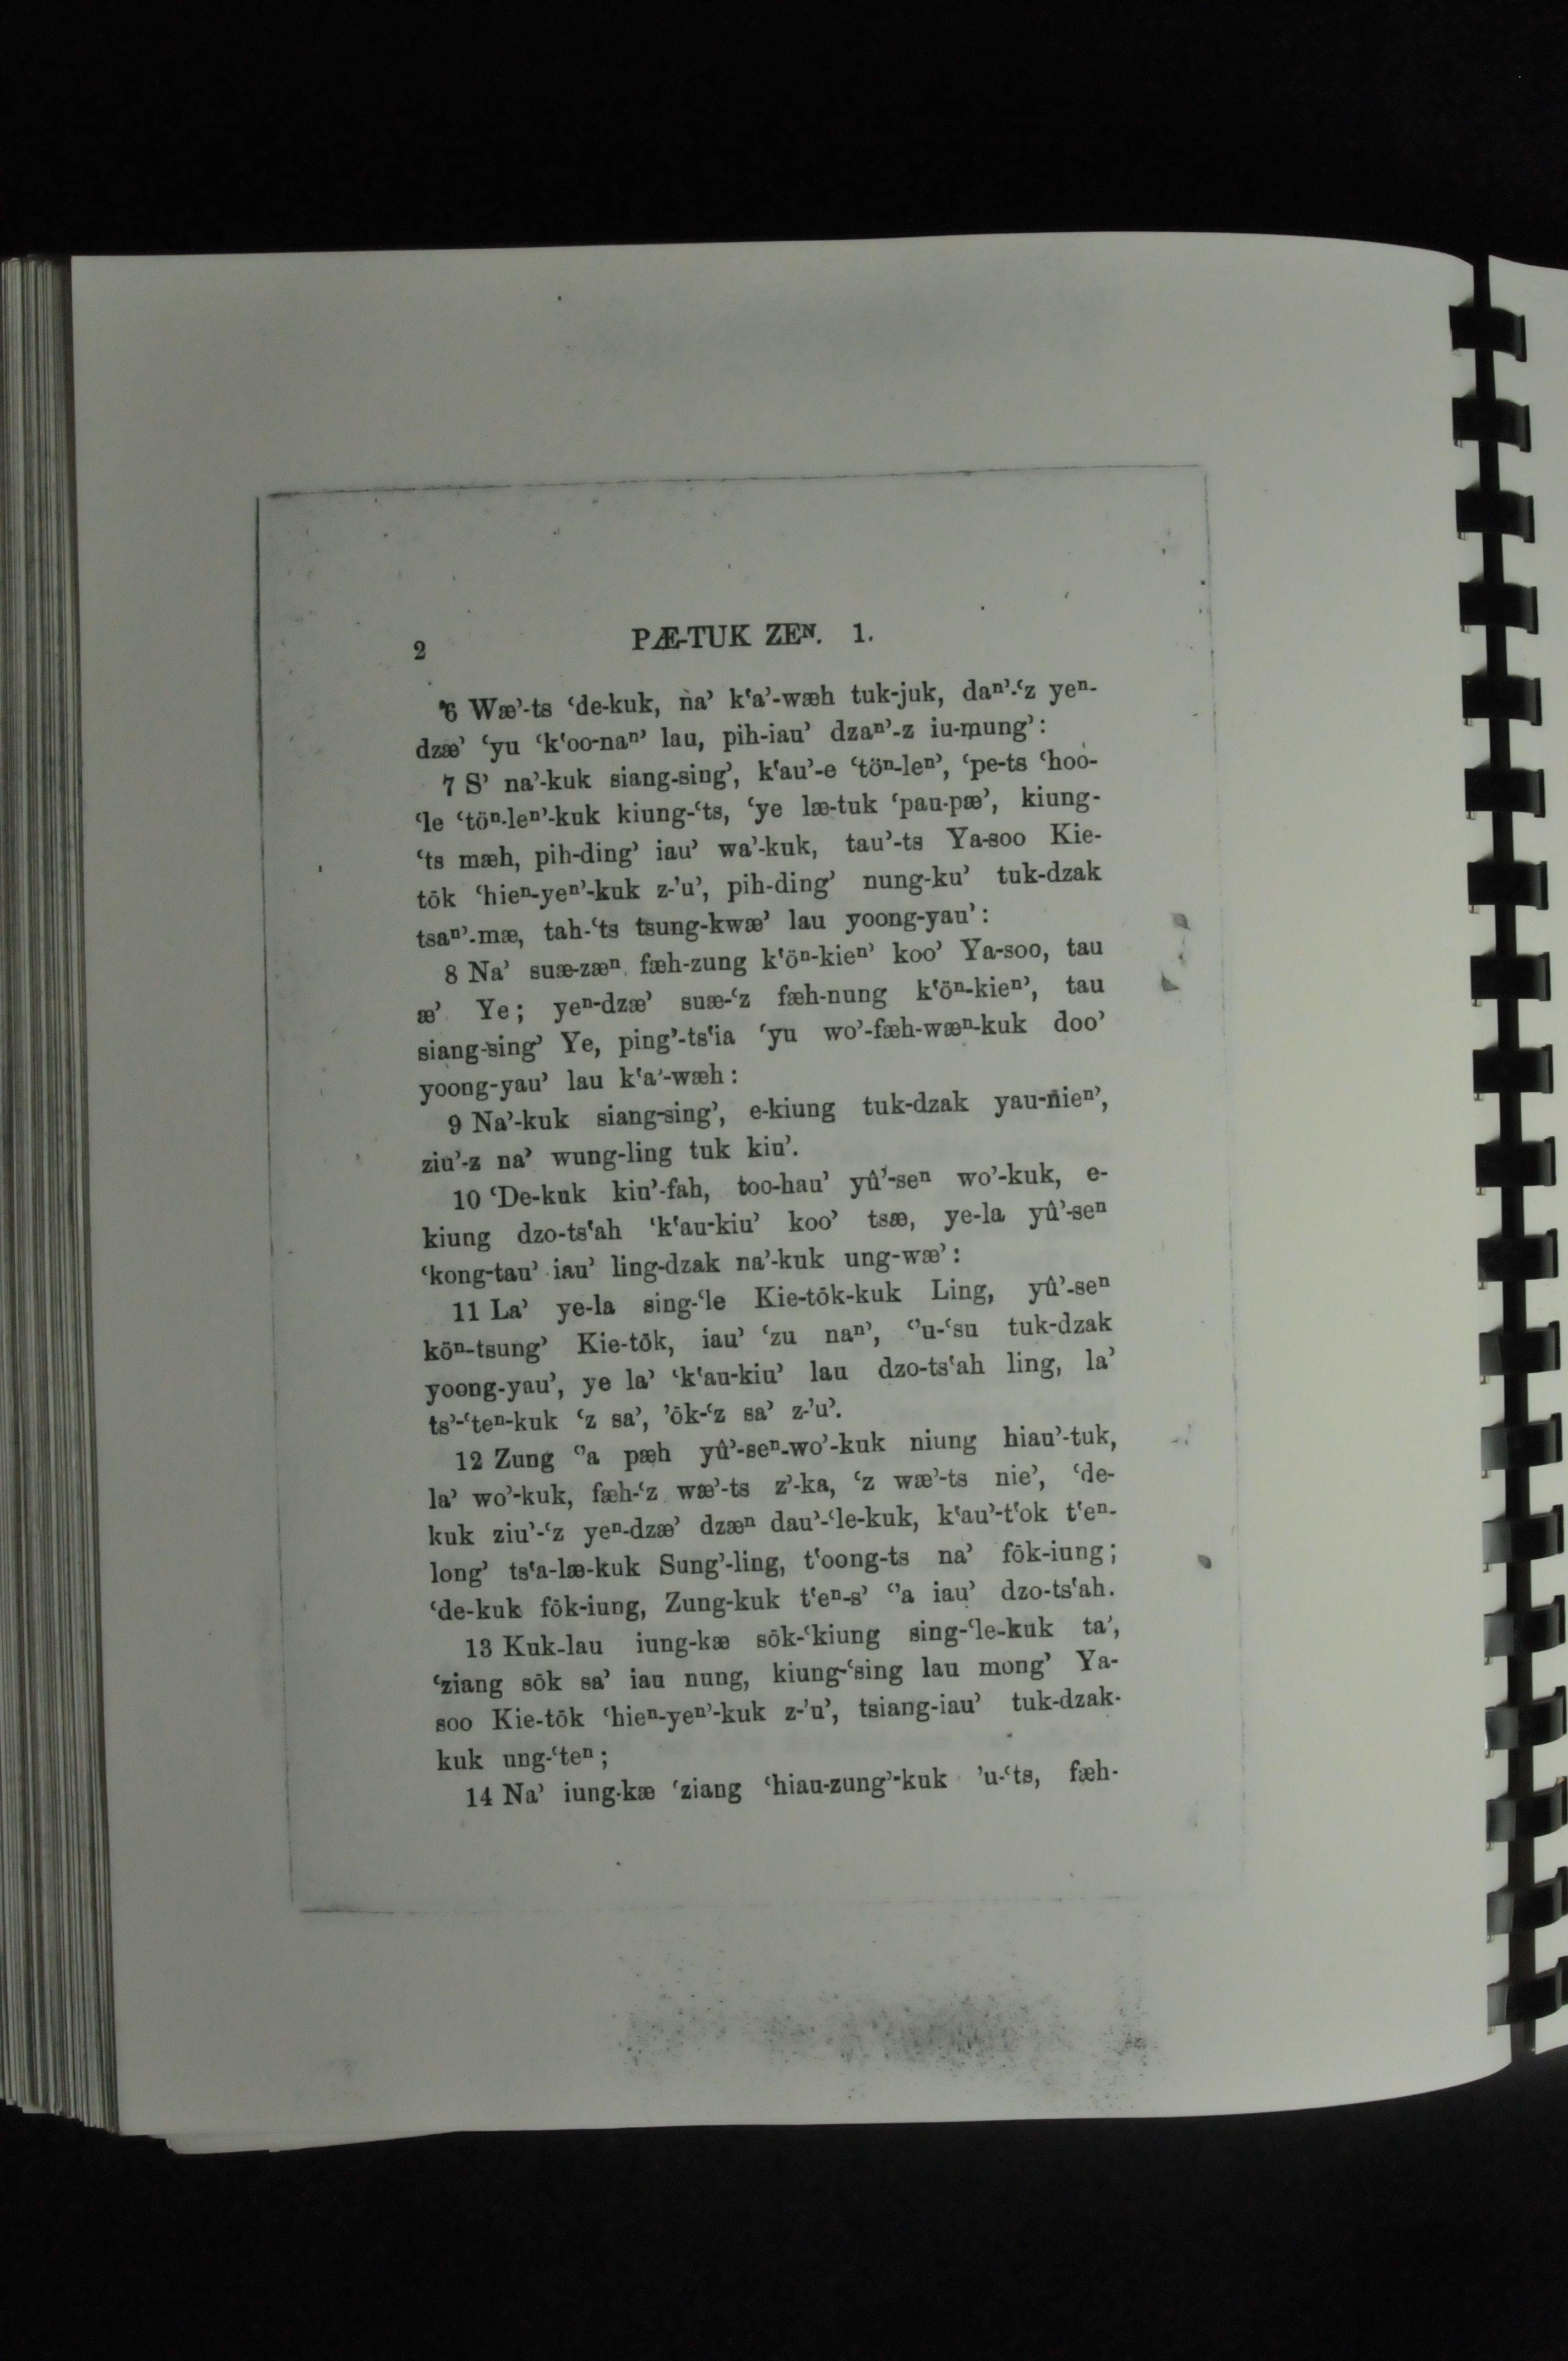 2 PÆ-TUK ZEᴺ. 1.
6 Wæ’-ts ‘de-kuk, na’ k‘a’-wæh tuk-juk, daⁿ’-‘z yeⁿ-
dzæ’ ‘yu ‘k‘oo-naⁿ’ lau, pih-iau’ dzaⁿ’-z iu-mung’:
7 S’ na’-kuk siang-sing’, k‘au’-e ‘töⁿ-leⁿ’, ‘pe-ts ‘hoo-
‘le ‘töⁿ-leⁿ’-kuk kiung-‘ts, ‘ye læ-tuk ‘pau-pæ’, kiung-
‘ts mæh, pih-ding’ iau’ wa’-kuk, tau’-ts Ya-soo Kie-
tōk ‘hieⁿ-yeⁿ’-kuk z-’u’, pih-ding’ nung-ku’ tuk-dzak
tsaⁿ’-mæ, tah-‘ts tsung-kwæ’ lau yoong-yau’:
8 Na’ suæ-zæⁿ fæh-zung k‘öⁿ-kieⁿ’ koo’ Ya-soo, tau
æ’ Ye; yeⁿ-dzæ’ suæ-‘z fæh-nung k‘öⁿ-kieⁿ’, tau
siang-sing’ Ye, ping’-ts‘ia ‘yu wo’-fæh-wæⁿ-kuk doo’
yoong-yau’ lau k‘a’-wæh:
9 Na’-kuk siang-sing’, e-kiung tuk-dzak yau-nieⁿ’,
ziu’-z na’ wung-ling tuk kiu’.
10 ‘De-kuk kiu’-fah, too-hau’ yû’-seⁿ wo’-kuk, e-
kiung dzo-ts‘ah ‘k‘au-kiu’ koo’ tsæ, ye-la yû’-seⁿ
‘kong-tau’ iau’ ling-dzak na’-kuk ung-wæ’:
11 La’ ye-la sing-‘le Kie-tōk-kuk Ling, yû’-seⁿ
köⁿ-tsung’ Kie-tōk, iau’ ‘zu naⁿ’, ‘’u-‘su tuk-dzak
yoong-yau’, ye la’ ‘k‘au-kiu’ lau dzo-ts‘ah ling, la’
ts’-‘teⁿ-kuk ‘z sa’, ’ōk-‘z sa’ z-’u’.
12 Zung ‘’a pæh yû’-seⁿ-wo’-kuk niung hiau’-tuk,
la’ wo’-kuk, fæh-‘z wæ’-ts z’-ka, ‘z wæ’-ts nie’, ‘de-
kuk ziu’-‘z yeⁿ-dzæ’ dzæⁿ dau’-‘le-kuk, k‘au’-t‘ok t‘eⁿ-
long’ ts‘a-læ-kuk Sung’-ling, t‘oong-ts na’ fōk-iung;
‘de-kuk fōk-iung, Zung-kuk t‘eⁿ-s’ ‘’a iau’ dzo-ts‘ah.
13 Kuk-lau iung-kæ sōk-‘kiung sing-‘le-kuk ta’,
‘ziang sōk sa’ iau nung, kiung-‘sing lau mong’ Ya-
soo Kie-tōk ‘hieⁿ-yeⁿ’-kuk z-’u’, tsiang-iau’ tuk-dzak-
kuk ung-‘teⁿ;
14 Na’ iung-kæ ‘ziang ‘hiau-zung’-kuk ’u-‘ts, fæh-